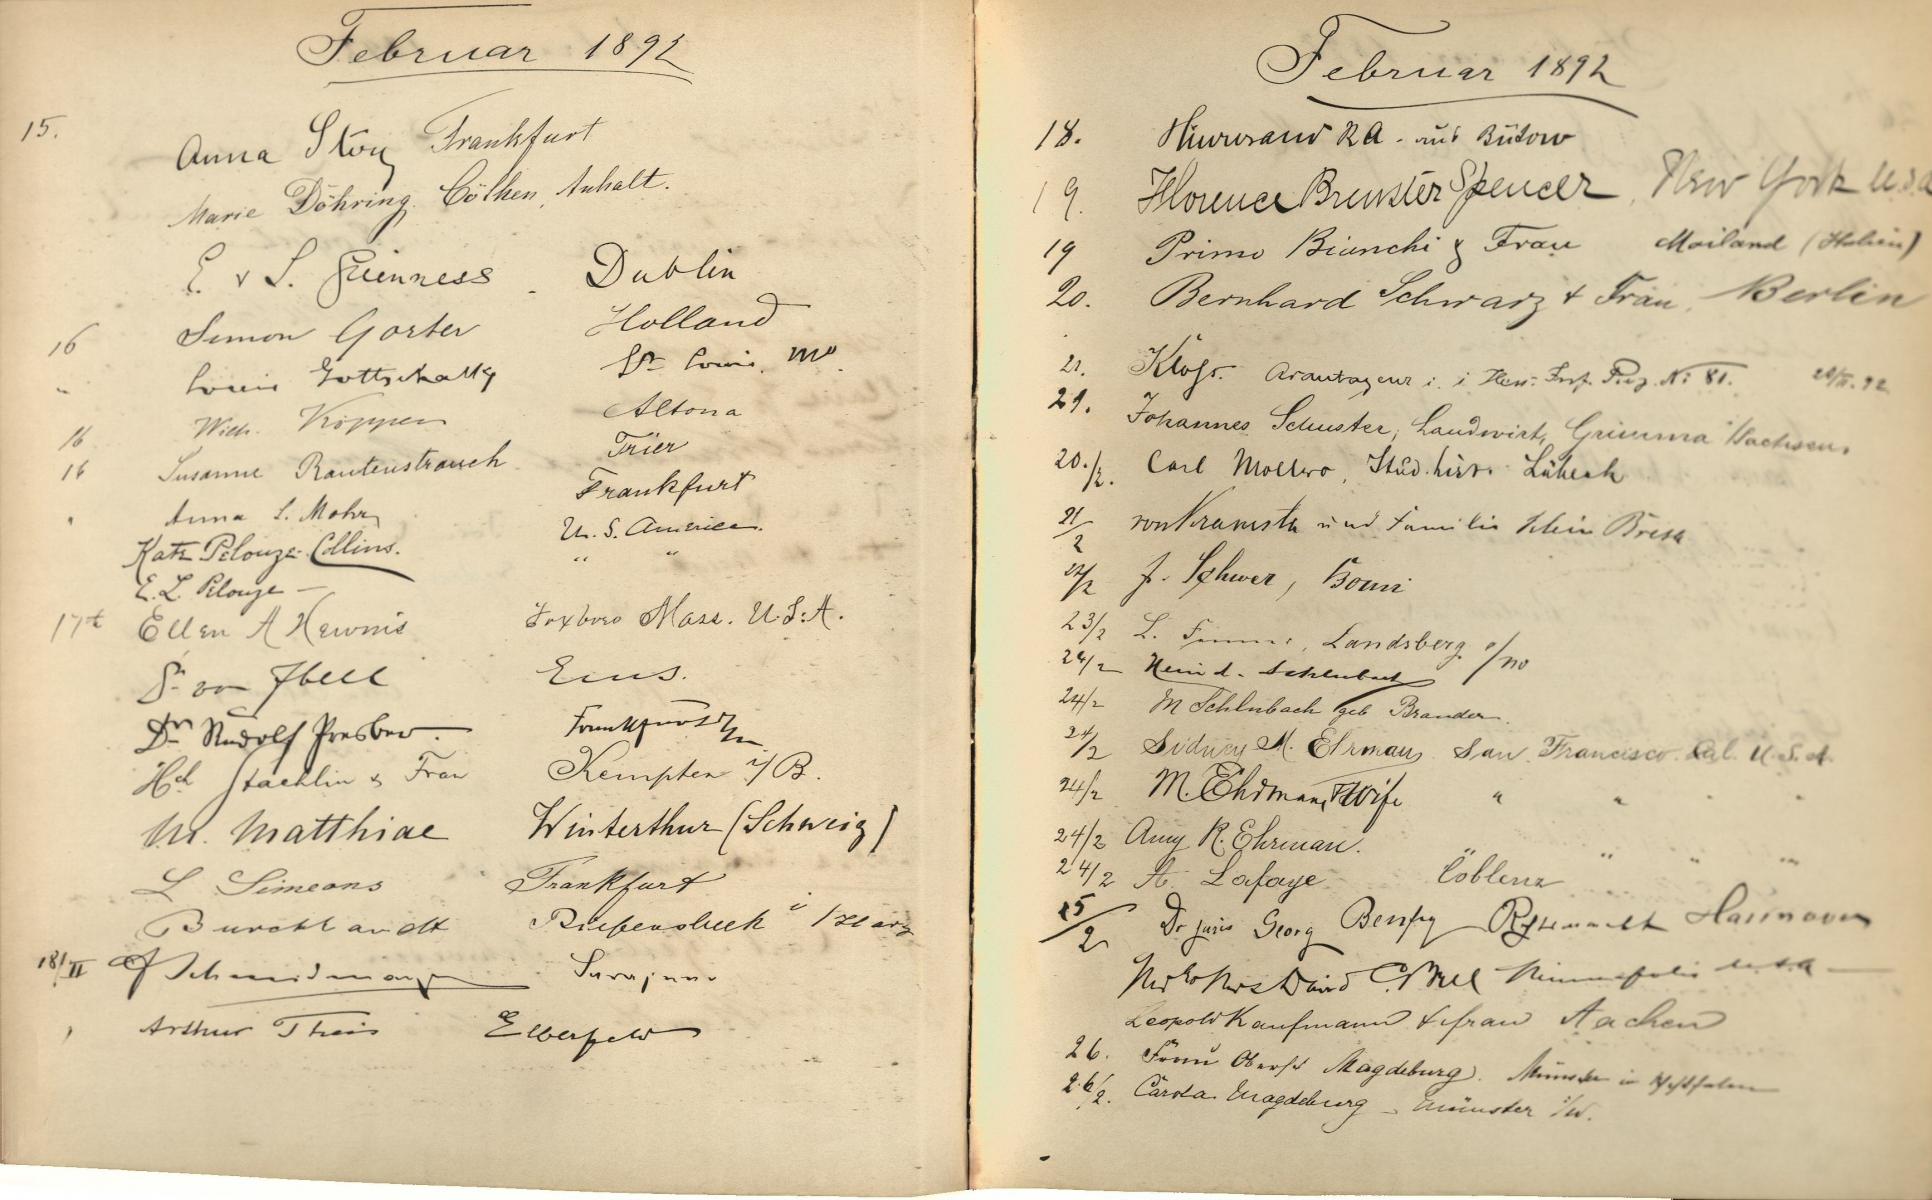 Februar 1892
15. Anna Stoy Frankfurt
Marie Döhring, Cöthen, Anhalt.
E. & S. Guinness Dublin
16 Simon Gorter Holland
" Louis Gottschalk St Louis. Mo
16 Wilh. Köppen Altona
16 Susanne Rautenstrauch Trier
" Anna S. Mohr Frankfurt
Kate Pelouze-Collins. U. S. America.
E. L. Pelouze — " "
17t Ellen A Foxboro Mass. U.S.A.
Dr von Ibell Ems.
Dr. Rudolf Presber. Frankfurt a/m
Hch Staehlin & Frau Kempten i/B.
M. Matthiae Winterthur (Schweiz)
L Simeons Frankfurt
Burchhardt i/Harz
18/II
" Arthur Theis Elberfeld
Februar 1892
18. RA. aus Bütow
19. Florence Brewster Spencer, New York U.S.A
19 Primo Bianchi & Frau Mailand (Italien)
20. Bernhard Schwarz & Frau, Berlin
21. No 81. 92
21. Johannes Schuster, Landwirt, Grimma Sachsen.
20./2. Carl Mollwo, Stud. hist. Lübeck
21/2 von Kramsta und Familie
22/2 J. Schwer, Bonn
23/2 L. Landsberg
24/2 Schlubach
24/2 M Schlubach geb Brander.
24/2 Sidney M. Ehrman San Francisco. Cal. U.S.A.
24/2 M. Ehrman & Wife " " " "
24/2 Amy R. Ehrman. " " "
24/2 A. Lafaye Coblenz
25/2 Dr juris Georg Benfey Rechtsanwalt Hannover
Mr & Mrs David C. Bell Minneapolis U.S.A
Leopold Kaufmann & frau Aachen
26. Frau Oberst Magdeburg. Münster in Westfalen
26/2. Carola Magdeburg – Münster i/W.